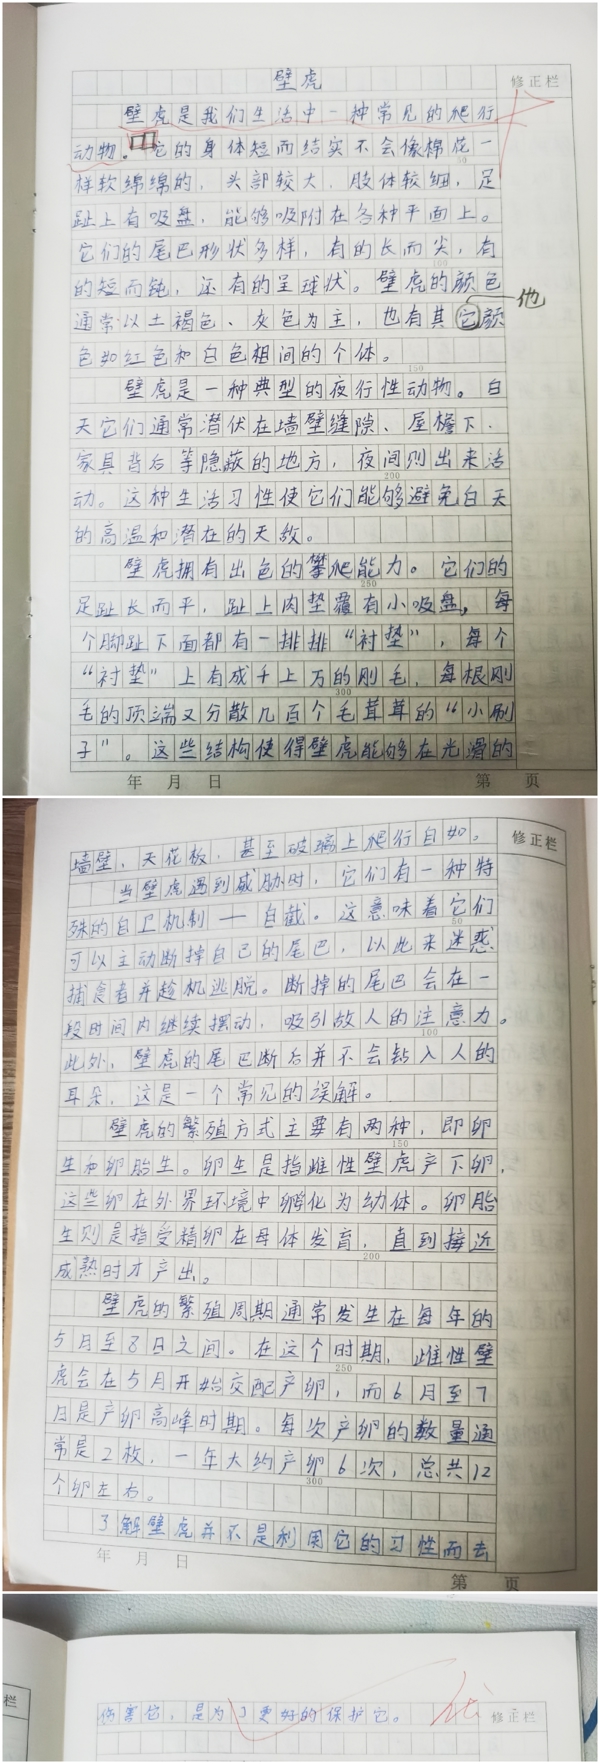 壁虎
修正栏
壁虎是我们生活中一种常见的爬行
动物。它的身体短而结实不会像棉花一
50
样软绵绵的，头部较大，肢体较细，足
趾上有吸盘，能够吸附在各种平面上。
它们的尾巴形状多样，有的长而尖，有
100
的短而钝，还有的呈球状。壁虎的颜色
他
通常以土褐色、灰色为主，也有其它颜
色如红色和白色相间的个体。
150
壁虎是一种典型的夜行性动物。白
天它们通常潜伏在墙壁缝隙、屋檐下、
家具背后等隐蔽的地方，夜间则出来活
200
动。这种生活习性使它们能够避免白天
的高温和潜在的天敌。
壁虎拥有出色的攀爬能力。它们的
250
足趾长而平，趾上肉垫覆有小吸盘，每
个脚趾下面都有一排排“衬垫”，每个
“衬垫”上有成千上万的刚毛，每根刚
300
毛的顶端又分散几百个毛茸茸的“小刷
子”。这些结构使得壁虎能够在光滑的
年 月 日
第 页
墙壁、天花板，甚至玻璃上爬行自如。
修正栏
当壁虎遇到威胁时，它们有一种特
殊的自卫机制——自截。这意味着它们
50
可以主动断掉自己的尾巴，以此来迷惑
捕食者并趁机逃脱。断掉的尾巴会在一
段时间内继续摆动，吸引敌人的注意力。
100
此外，壁虎的尾巴断后并不会钻入人的
耳朵，这是一个常见的误解。
壁虎的繁殖方式主要有两种，即卵
150
生和卵胎生。卵生是指雌性壁虎产下卵，
这些卵在外界环境中孵化为幼体。卵胎
生则是指受精卵在母体发育，直到接近
200
成熟时才产出。
壁虎的繁殖周期通常发生在每年的
5月至8日之间。在这个时期，雌性壁
250
虎会在5月开始交配产卵，而6月至7
日是产卵高峰时期。每次产卵的数量通
常是2枚，一年大约产卵6次，总共12
300
个卵左右。
了解壁虎并不是利用它的习性而去
年 月 日
第 页
栏
伤害它，是为了更好的保护它。
修正栏